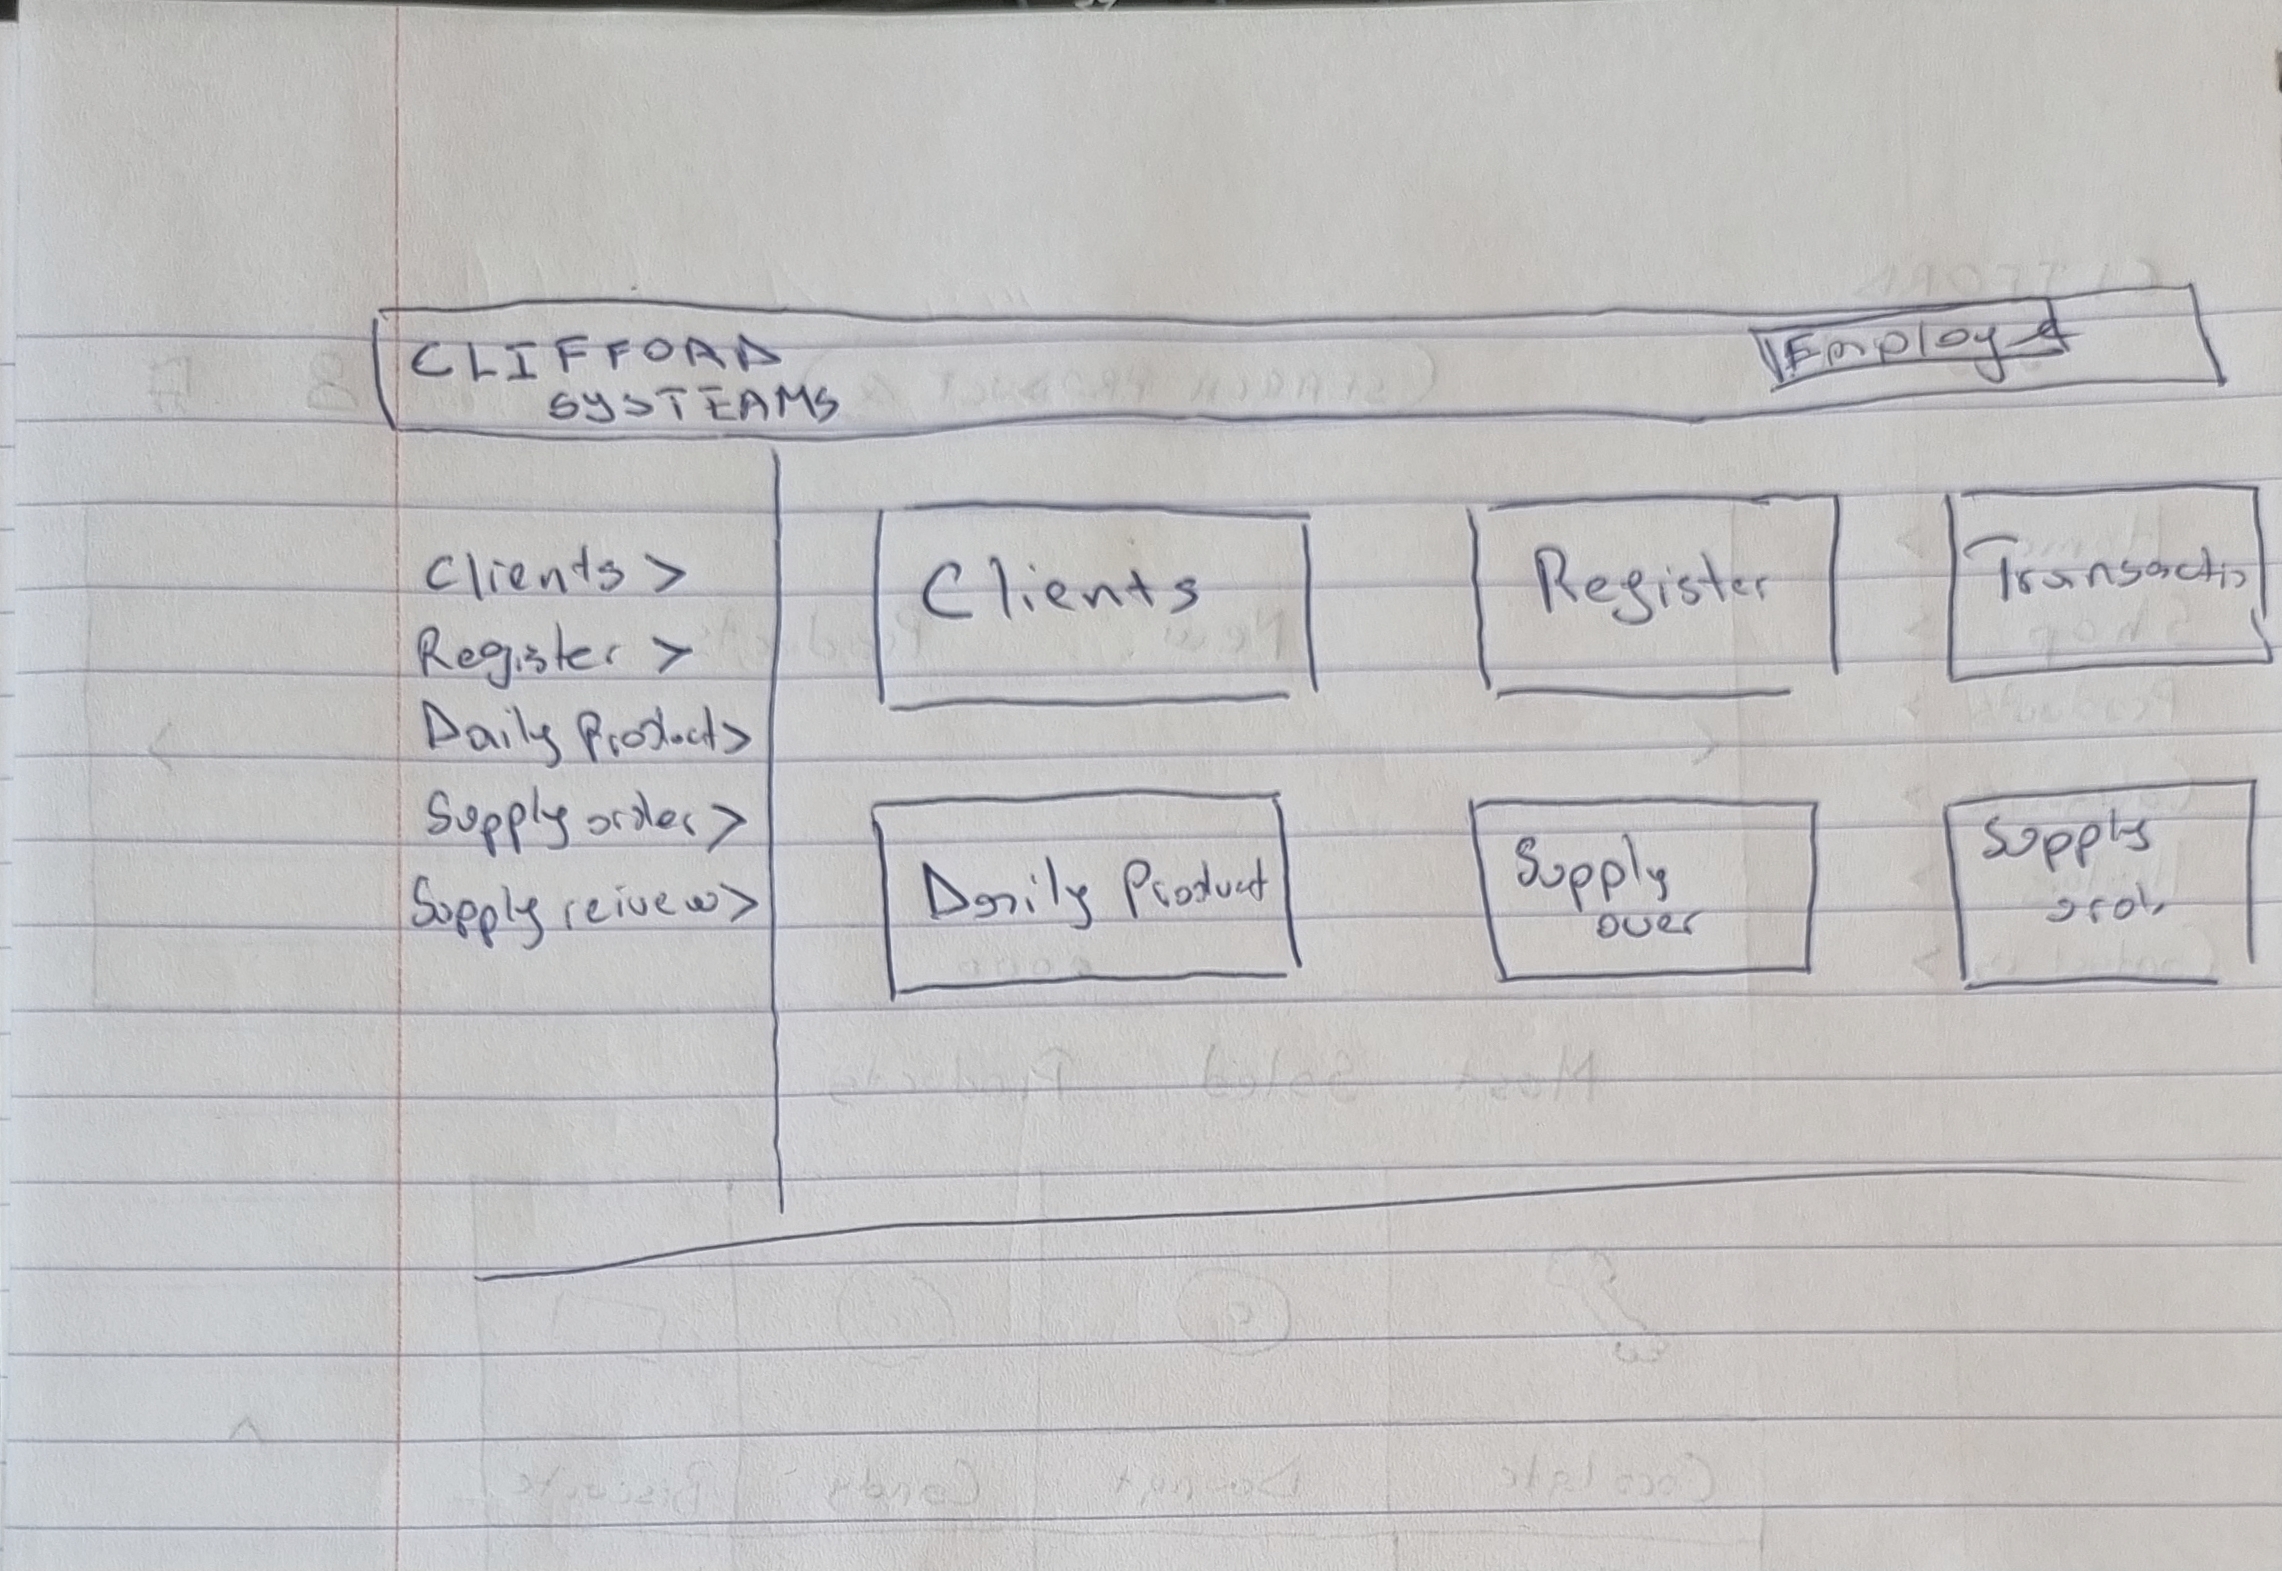 CLIFFORD
SYSTEAMS
Employ
Clients >
Register >
Daily Product >
Supply order >
Supply reivew >
Clients
Register
Transactio
Daily Product
Supply
over
Supply